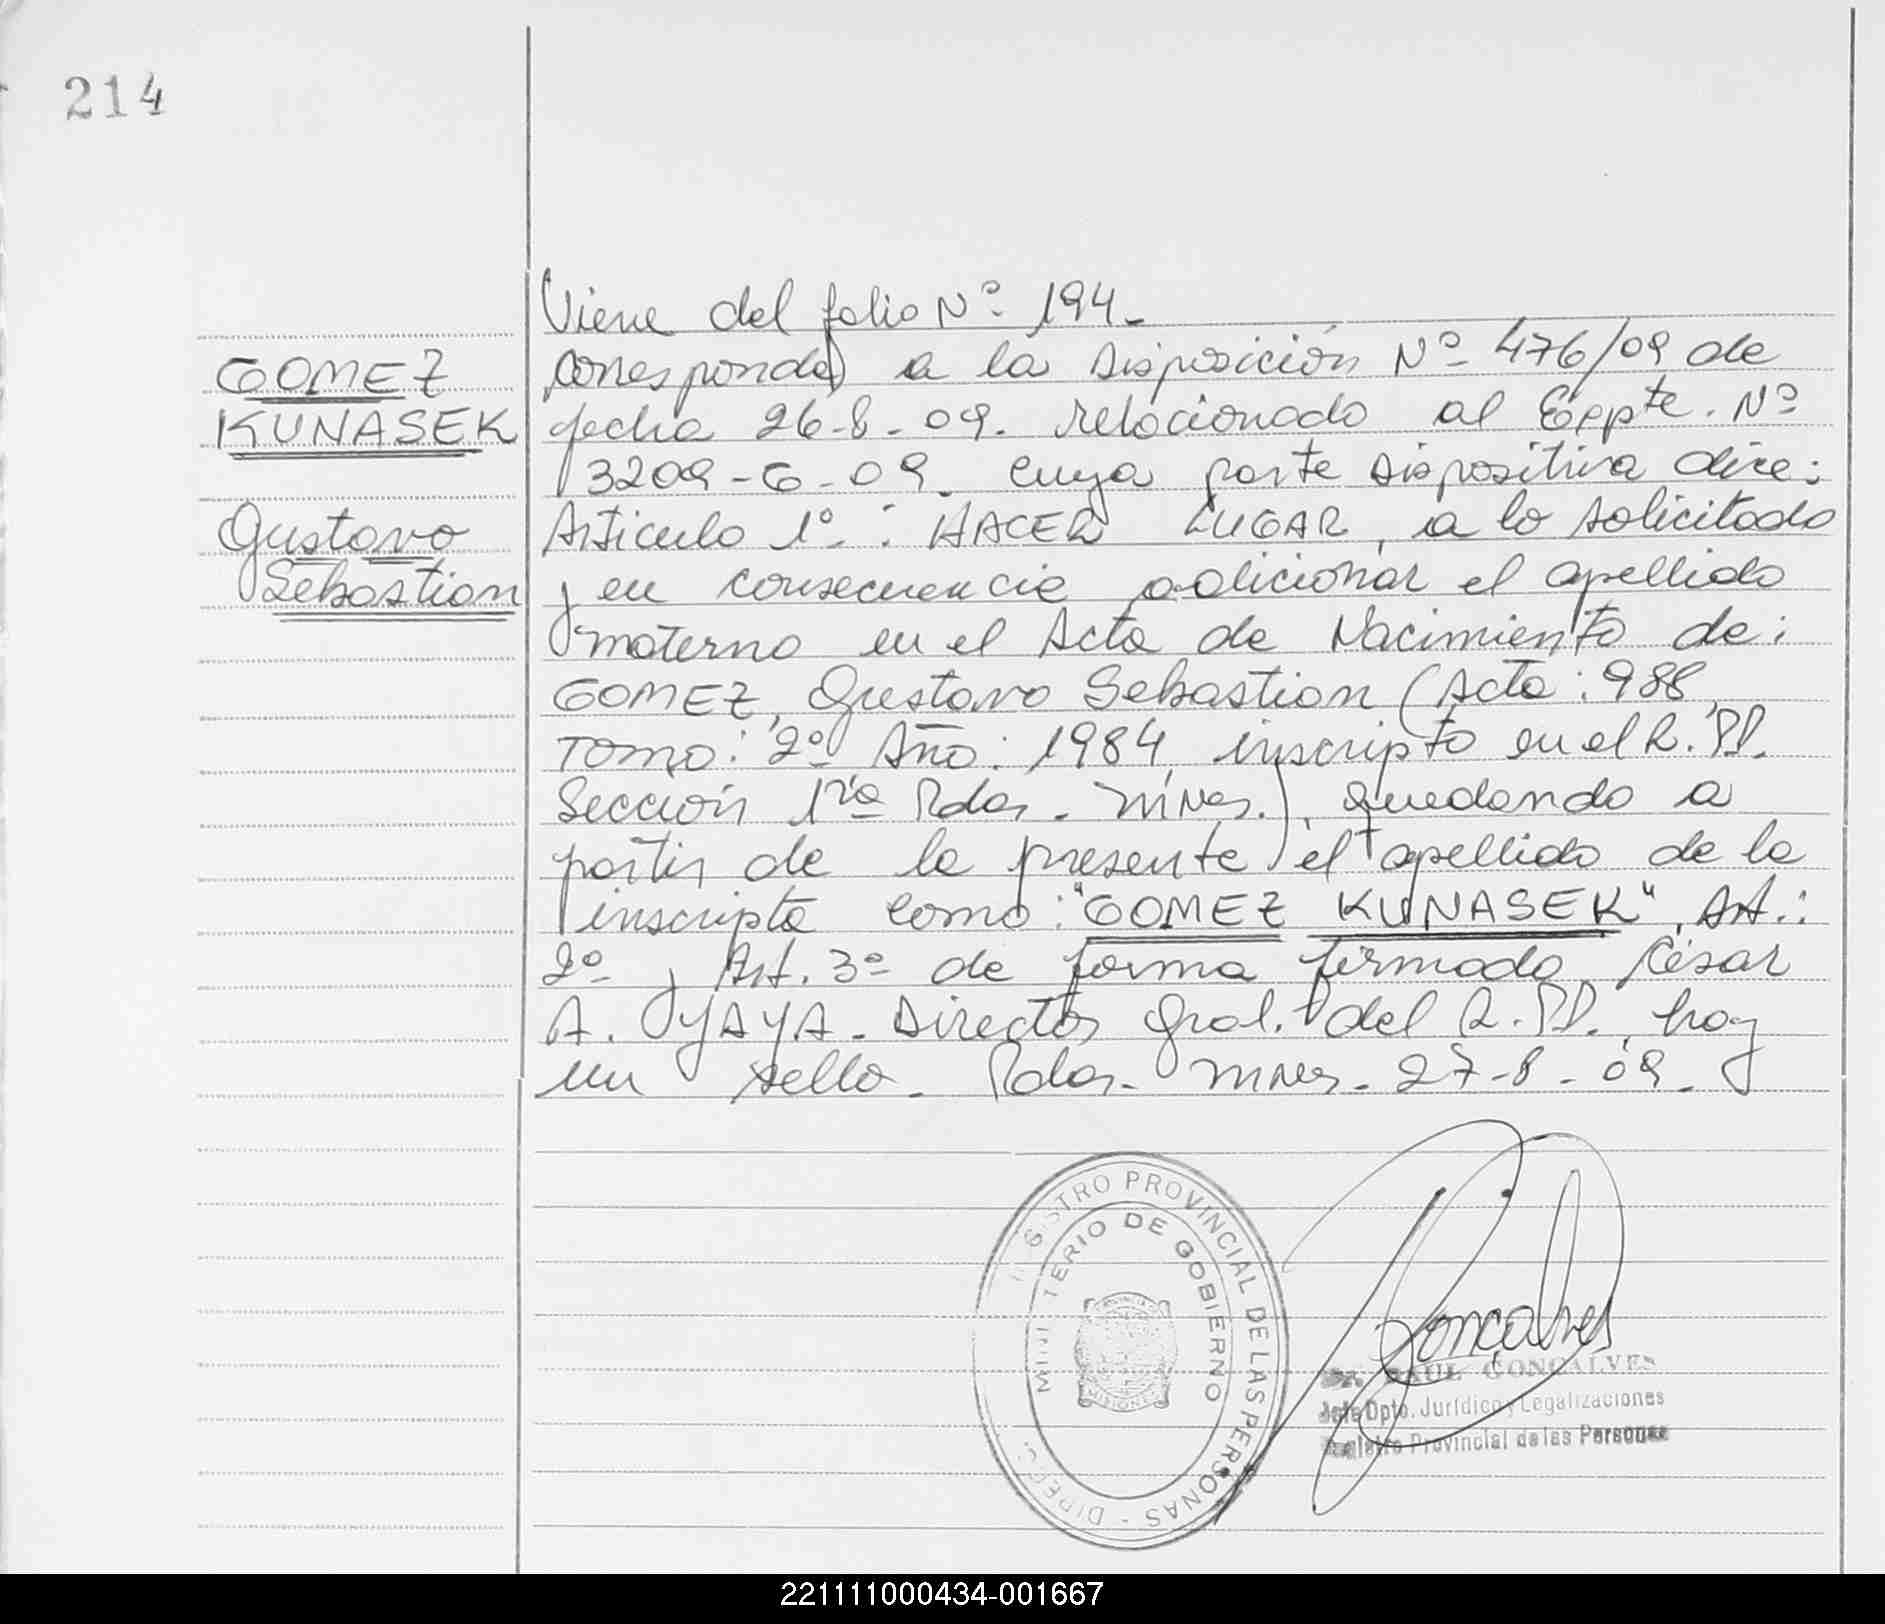 214
Viene del folio Nº 194-
GOMEZ
KUNASEK
Gustavo
Sebastian
corresponde a la Disposición Nº 476/09 de
fecha 26-8-09. relacionado al Expte. Nº
3209-G-09. cuya parte dispositiva dice:
Articulo 1º: HACER LUGAR, a lo solicitado
y en consecuencia adicionar el apellido
materno en el Acta de Nacimiento de:
GOMEZ, Gustavo Sebastian (Acta: 988,
TOMO: 2º Año: 1984, inscripto en el R.PP.
Sección 1ra Pdas. Mnes.), quedando a
partir de la presente el apellido de la
inscripta como: "GOMEZ KUNASEK", Art.:
2º y Art. 3º de forma firmado César
A. OJAYA. Director Gral. del R.PP. hay
un sello. Pdas. Mnes. 27-8-09.
REGISTRO PROVINCIAL DE LAS PERSONAS - DIREC
MINISTERIO DE GOBIERNO
PROVINCIA DE
MISIONES
Gonçalves
Dr. RAUL GONÇALVES
Jefe Dpto. Jurídico y Legalizaciones
Registro Provincial de las Personas
221111000434-001667